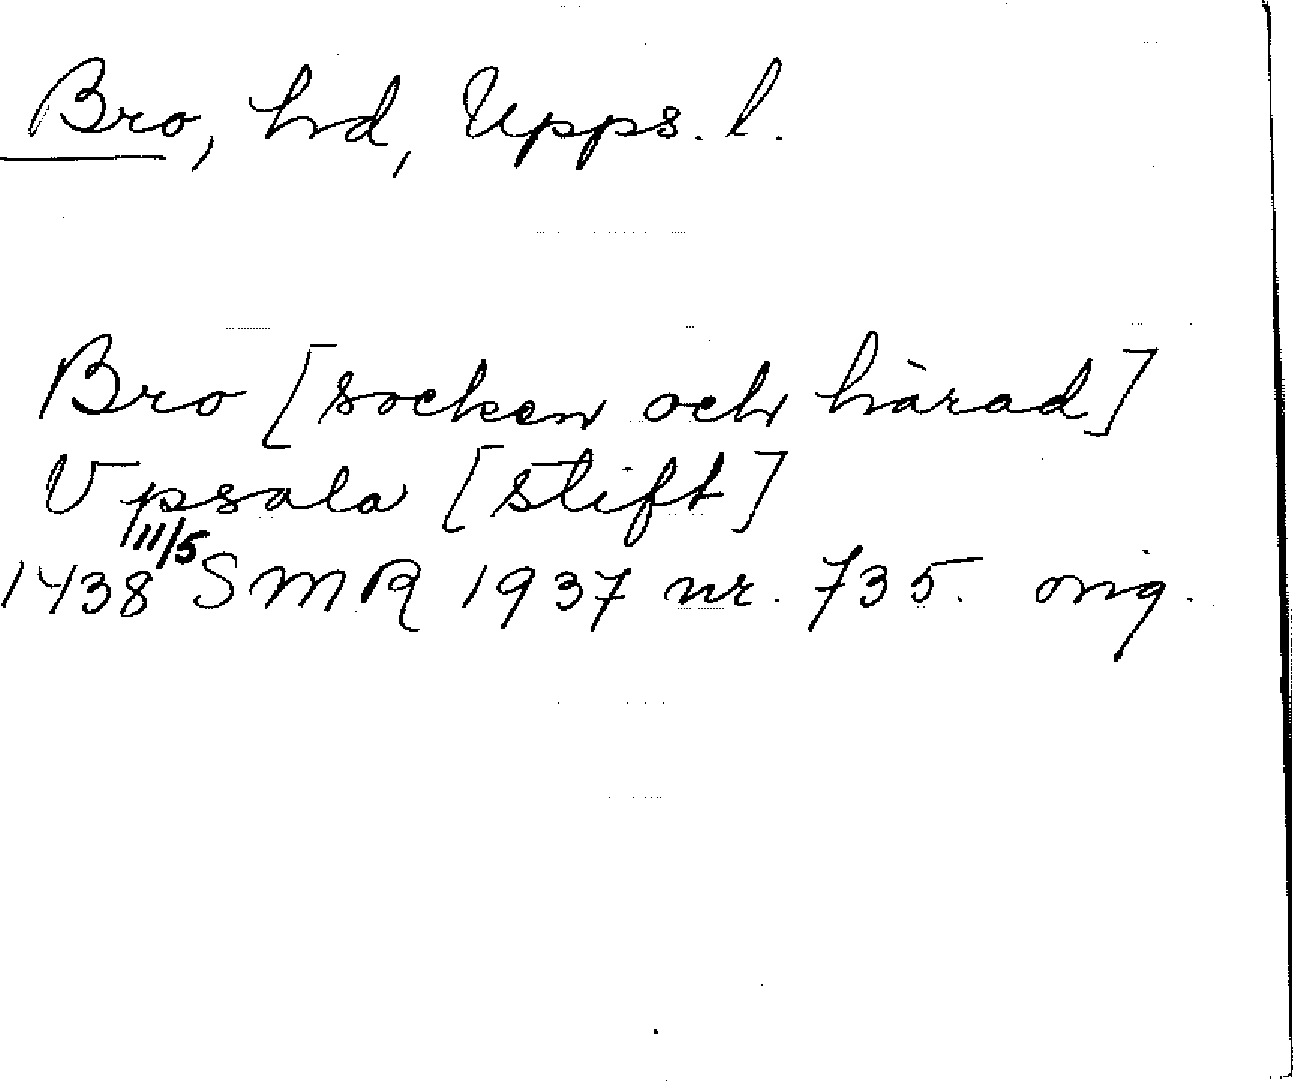 Bro, hd, Upps. l.
Bro [socken och härad]
Vpsala [stift]
1438 11/5 SMR 1937 nr. 735. orig.